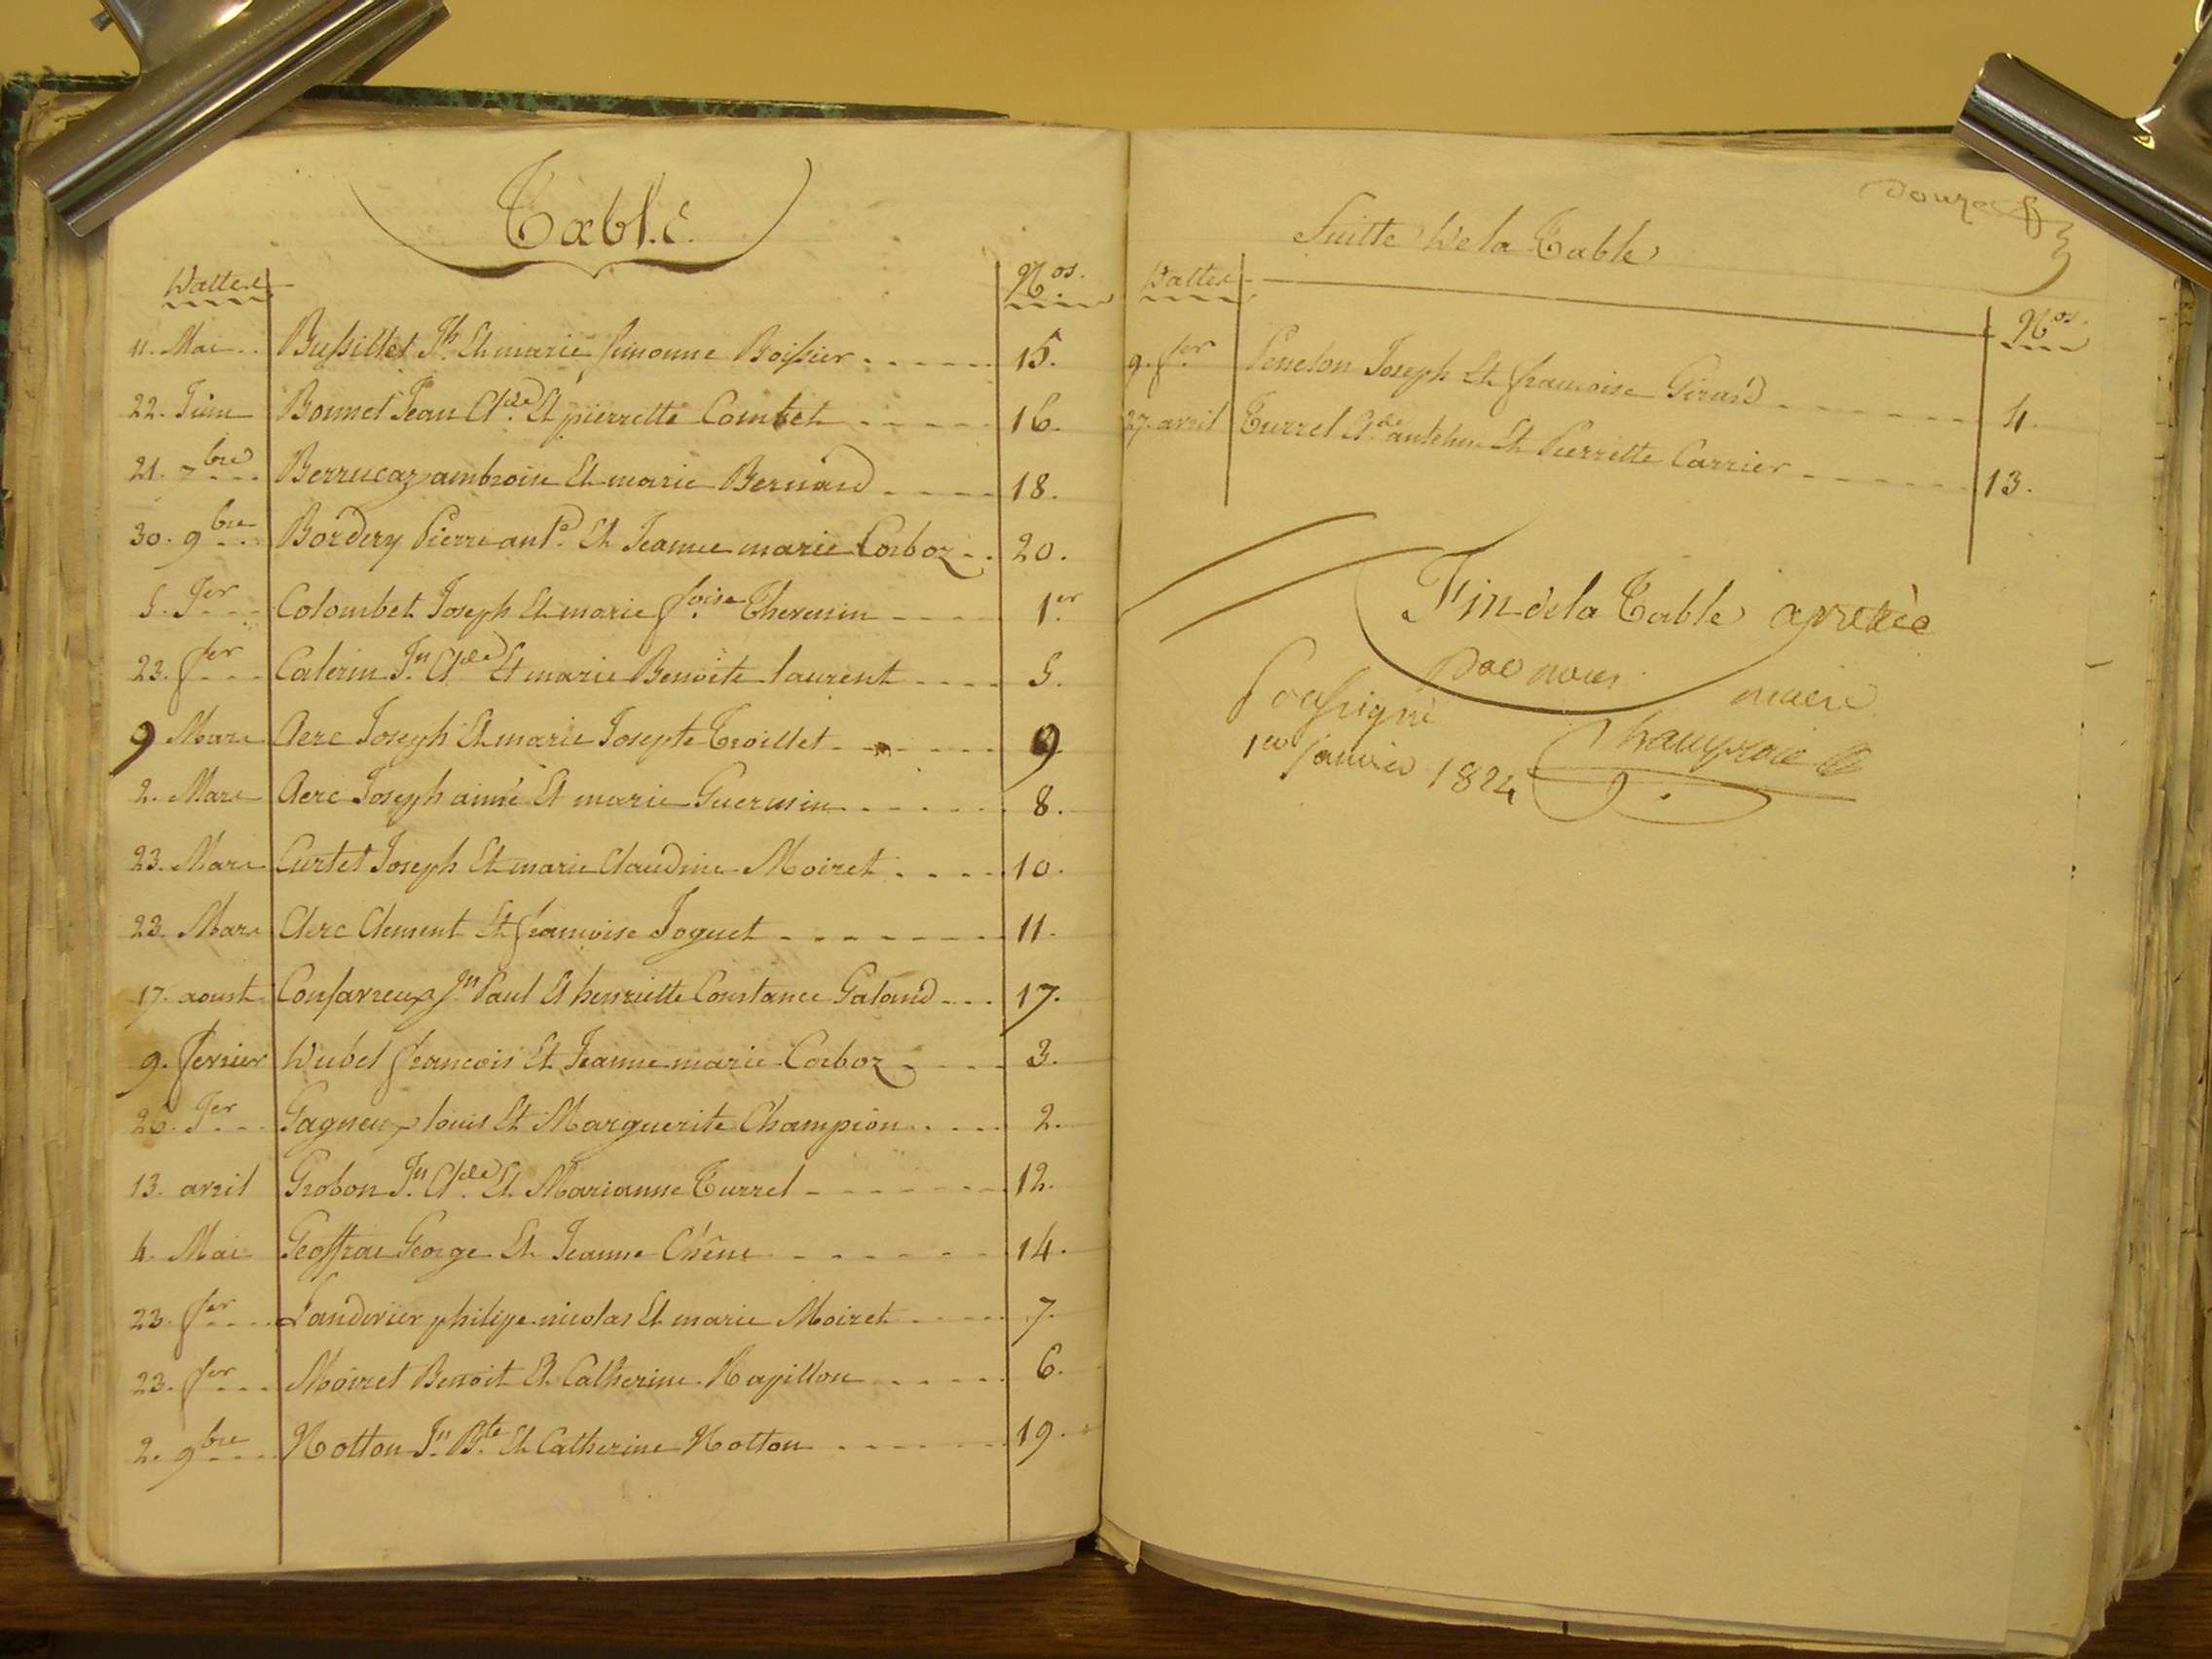 Table.
Dattes Nos.
11. Mai Bussillet Jh Et marie simonne Boissier 15.
22. Juin Bonnet Jean Cl.de Et pierrette Combet 16.
21. 7bre Berrucaz ambroise Et marie Bernard 18.
30. 9bre Bordery Pierre ant.e Et Jeanne marie Corboz 20.
5. Jer Colombet Joseph Et marie f.oise Thevenin 1er
23. fer Caterin Jn Cl.de Et marie Benoite laurent 5.
9 Mars Clerc Joseph Et marie Josepte Troillet 9
2. Mars Clerc Joseph aimé Et marie Guermin 8.
23. Mars Curtet Joseph Et marie Claudine Moiret 10.
23. Mars Clerc Clement Et francoise Joguet 11.
17. aoust Jn Paul Et henriette Constance Galand 17.
9. fevrier Dubel francois Et Jeanne marie Corboz 3.
26. Jer Gagneux louis Et Marguerite Champion 2.
13. avril Grobon Jn Cl.de Et Marianne Turrel 12.
4. Mai Geoffrai George Et Jeanne Chêne 14.
23. fer Landerier philipe nicolas Et marie Moiret 7.
23. fer Moiret Benoit Et Catherine Rapillon 6.
2. 9bre Notton Jn Bte Et Catherine Notton 19.
Douze
Suitte De la Table
Dattes Nos.
9. fer Penelon Joseph Et francoise Girard 4.
27. avril Turrel Cl.de antelme Et Pierrette Carrier 13.
Fin de la Table arretée
par nous maire
1er Janvier 1824